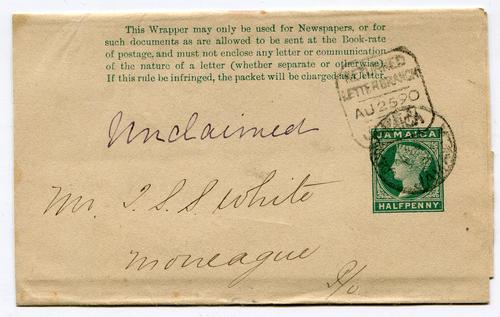 This Wrapper may only be used for Newspapers, or for
such documents as are allowed to be sent at the Book-rate
of postage, and must not enclose any letter or communication
of the nature of a letter (whether separate or otherwise).
If this rule be infringed, the packet will be charged as a letter.
RETURNED
LETTER BRANCH
AU 25 90
JAMAICA
Unclaimed
JAMAICA
HALFPENNY
Mr. J. S. S. White
Moneague
P/o